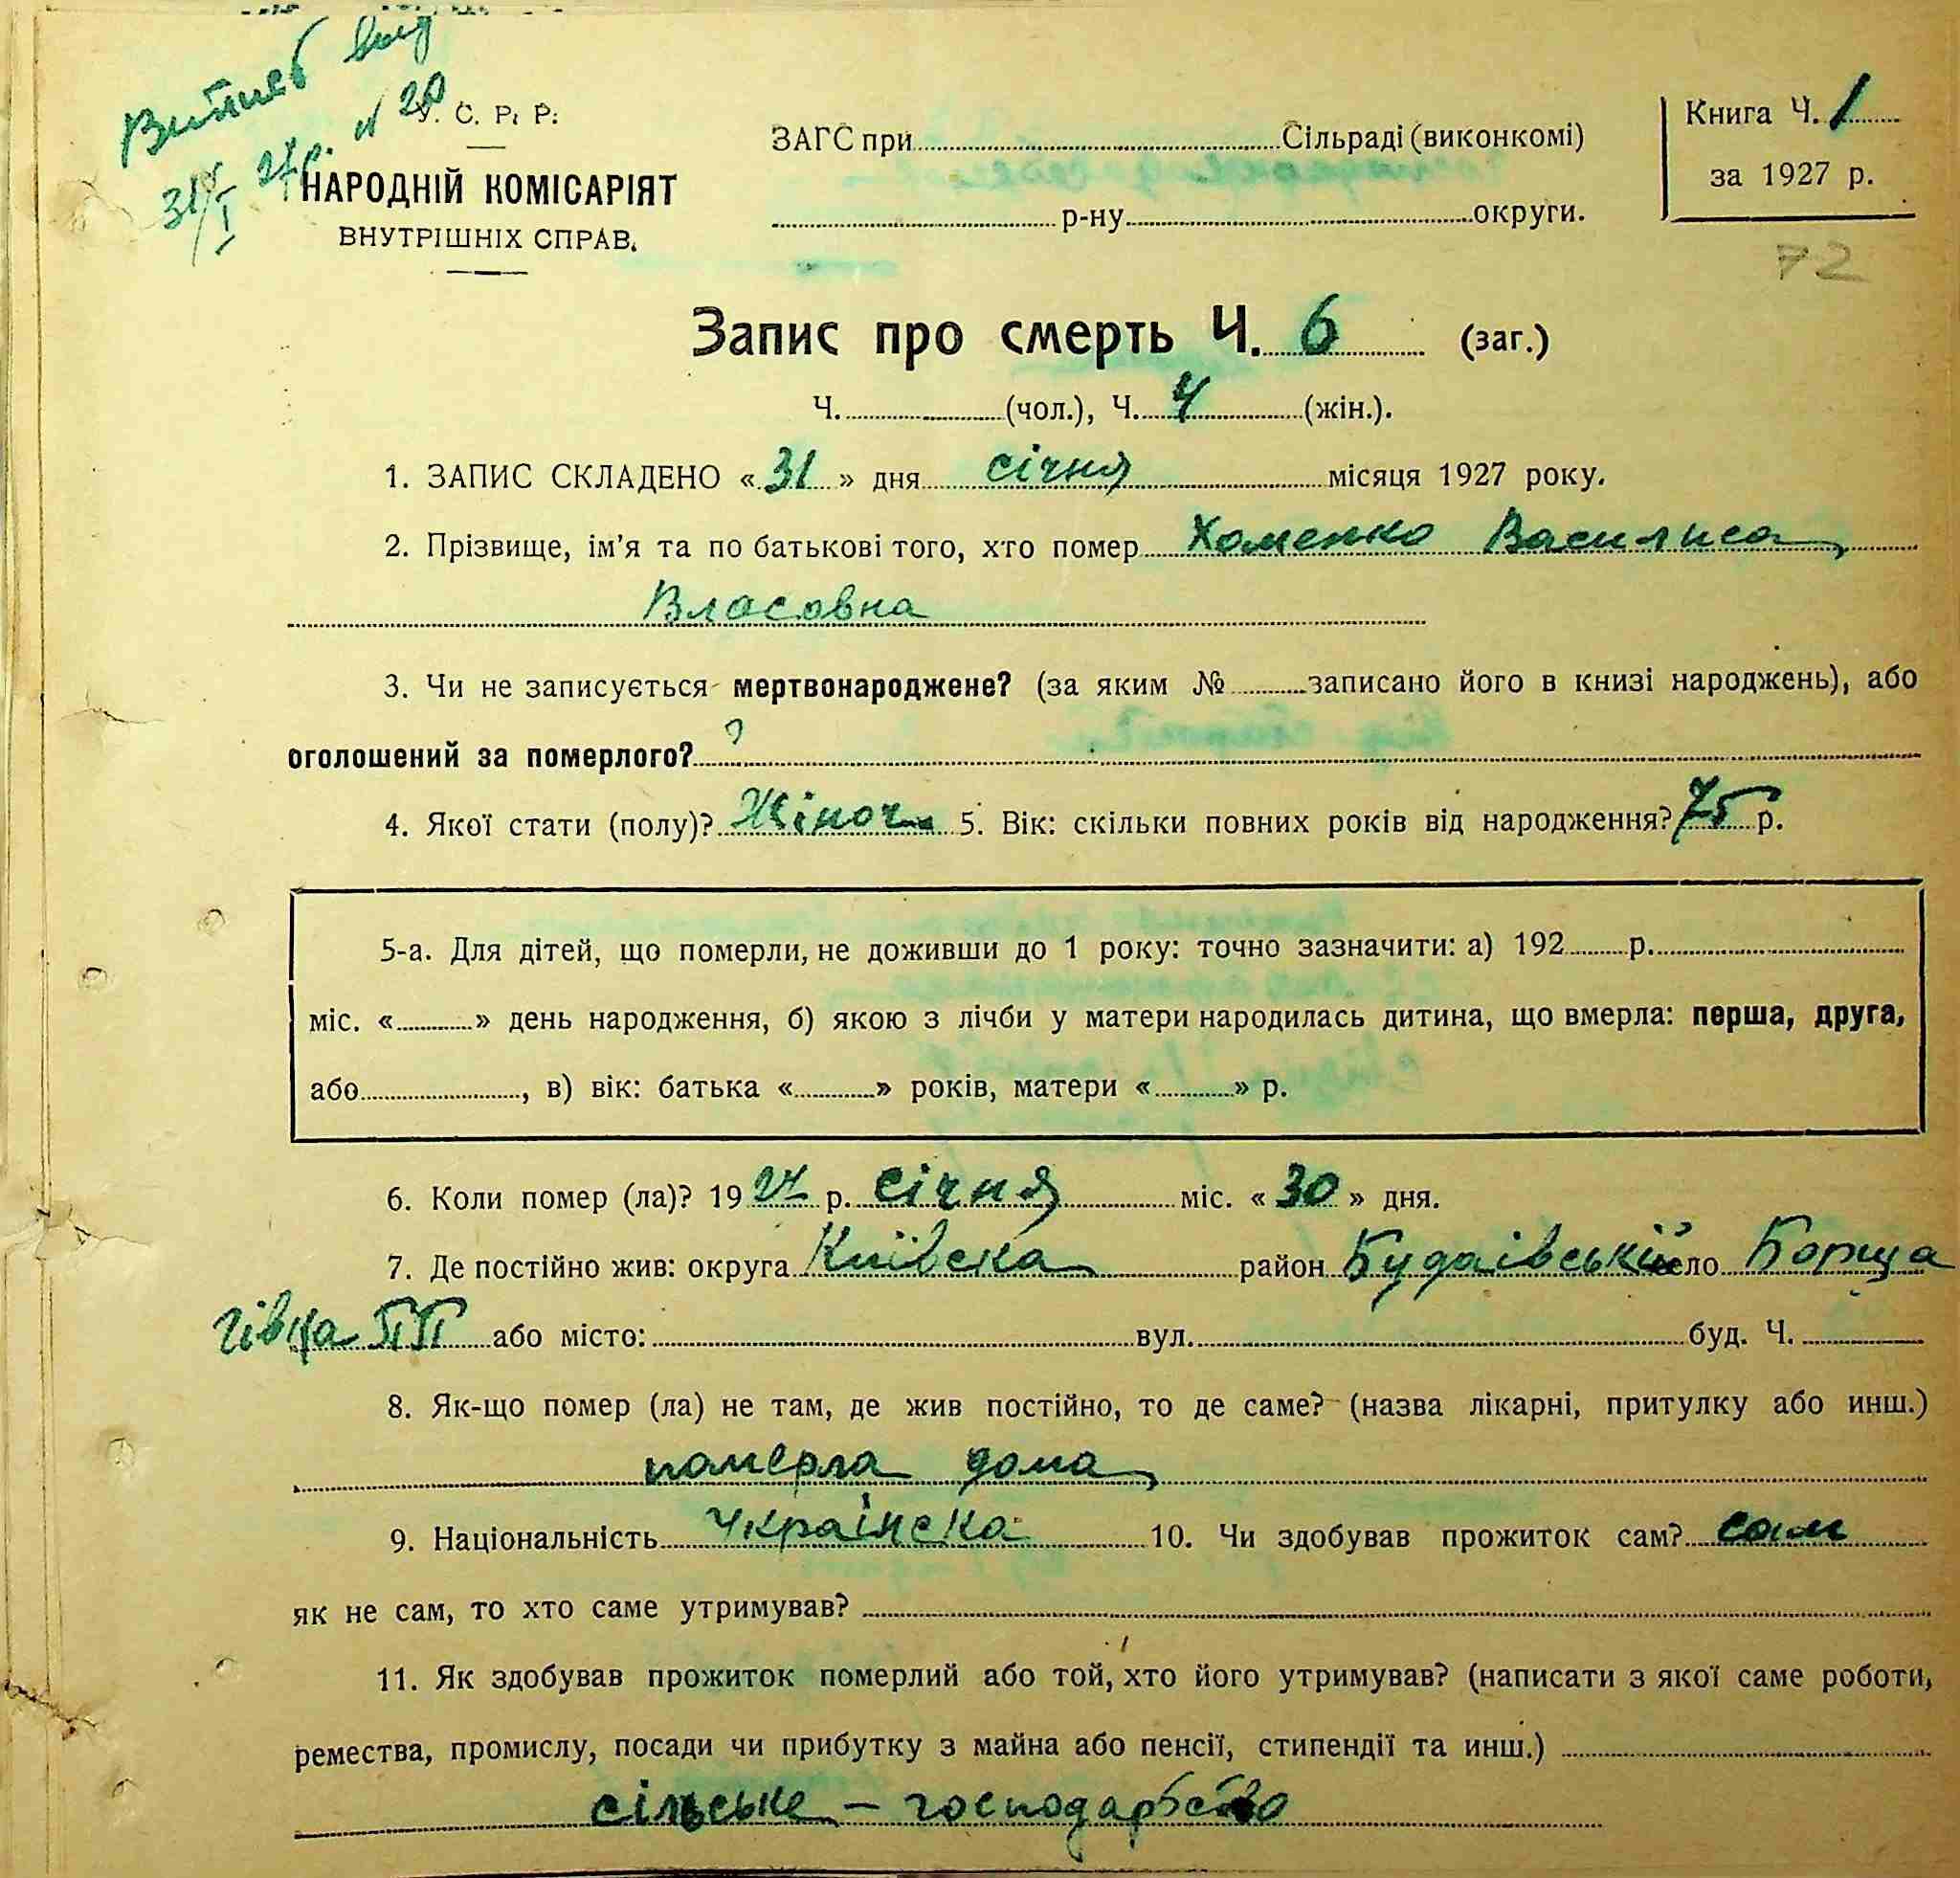 Витяг вид
31/I 27р. N 20
У. С. Р. Р.
НАРОДНІЙ КОМІСАРІЯТ
ВНУТРІШНІХ СПРАВ.
ЗАГС при Сільраді (виконкомі)
р-ну округи.
Книга Ч. 1
за 1927 р.
72
Запис про смерть Ч. 6 (заг.)
Ч. (чол.), Ч. 4 (жін.).
1. ЗАПИС СКЛАДЕНО « 31 » дня січня місяця 1927 року.
2. Прізвище, ім’я та по батькові того, хто помер Хоменко Василиса
Власовна
3. Чи не записується мертвонароджене? (за яким № записано його в книзі народжень), або
оголошений за померлого? ?
4. Якої стати (полу)? Жіноч. 5. Вік: скільки повних років від народження? 75 р.
5-а. Для дітей, що померли, не доживши до 1 року: точно зазначити: а) 192 р.
міс. « » день народження, б) якою з лічби у матери народилась дитина, що вмерла: перша, друга,
або , в) вік: батька « » років, матери « » р.
6. Коли помер (ла)? 1927 р. січня міс. « 30 » дня.
7. Де постійно жив: округа Київска район Будаівській село Борща
гівка ПП або місто: вул. буд. Ч.
8. Як-що помер (ла) не там, де жив постійно, то де саме? (назва лікарні, притулку або инш.)
померла дома
9. Національність Украінска 10. Чи здобував прожиток сам? сам
як не сам, то хто саме утримував?
11. Як здобував прожиток померлий або той, хто його утримував? (написати з якої саме роботи,
ремества, промислу, посади чи прибутку з майна або пенсії, стипендії та инш.)
сільське – господарство